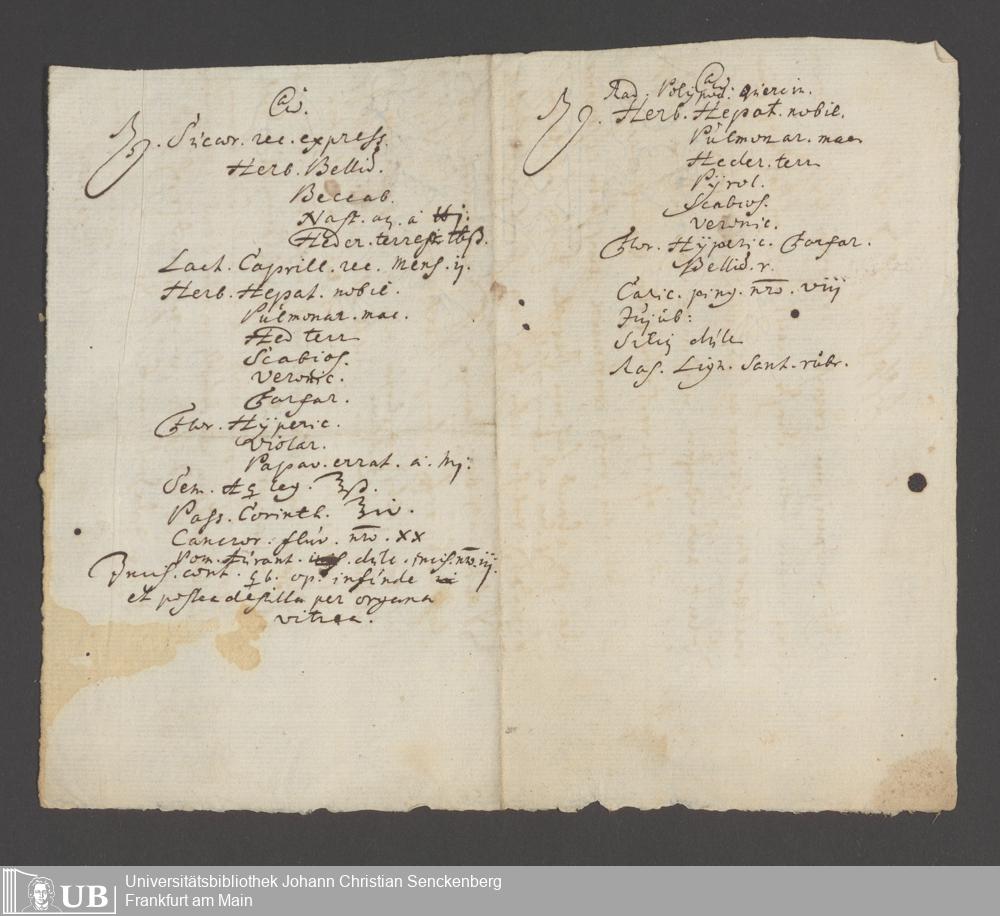 ℞. Succor. rec. express.
Herb. Bellid.
Beccab.
Nast. aq. a
Heder. terrest. ℔ß.
Lact. Caprill. rec. mens. ij.
Herb. Hepat. nobil.
Pulmonar. mac.
Hed terr
Scabios.
Veronic.
Farfar.
Flor. Hyperic.
Violar.
Papav. errat. a. Mj.
Sem. ʒß.
Pass. Corinth. ʒiv.
Cancror. fluv. nro. XX
Pom. Aurant. dulc. incis. nro. iij.
Incis. cont. op. infunde
et postea destilla per organa
vitrea.
Rad. Polypod. querin.
℞. Herb. Hepat. nobil.
Pulmonar. mac
Heder. terr
Pyrol.
Scabios.
Veronic.
Flor. Hyperic. Farfar.
Bellid. r.
Caric. ping. nro. viij
Jujub:
dulc
Ras. Lign. Sant. rubr.
UB
Universitätsbibliothek Johann Christian Senckenberg
Frankfurt am Main